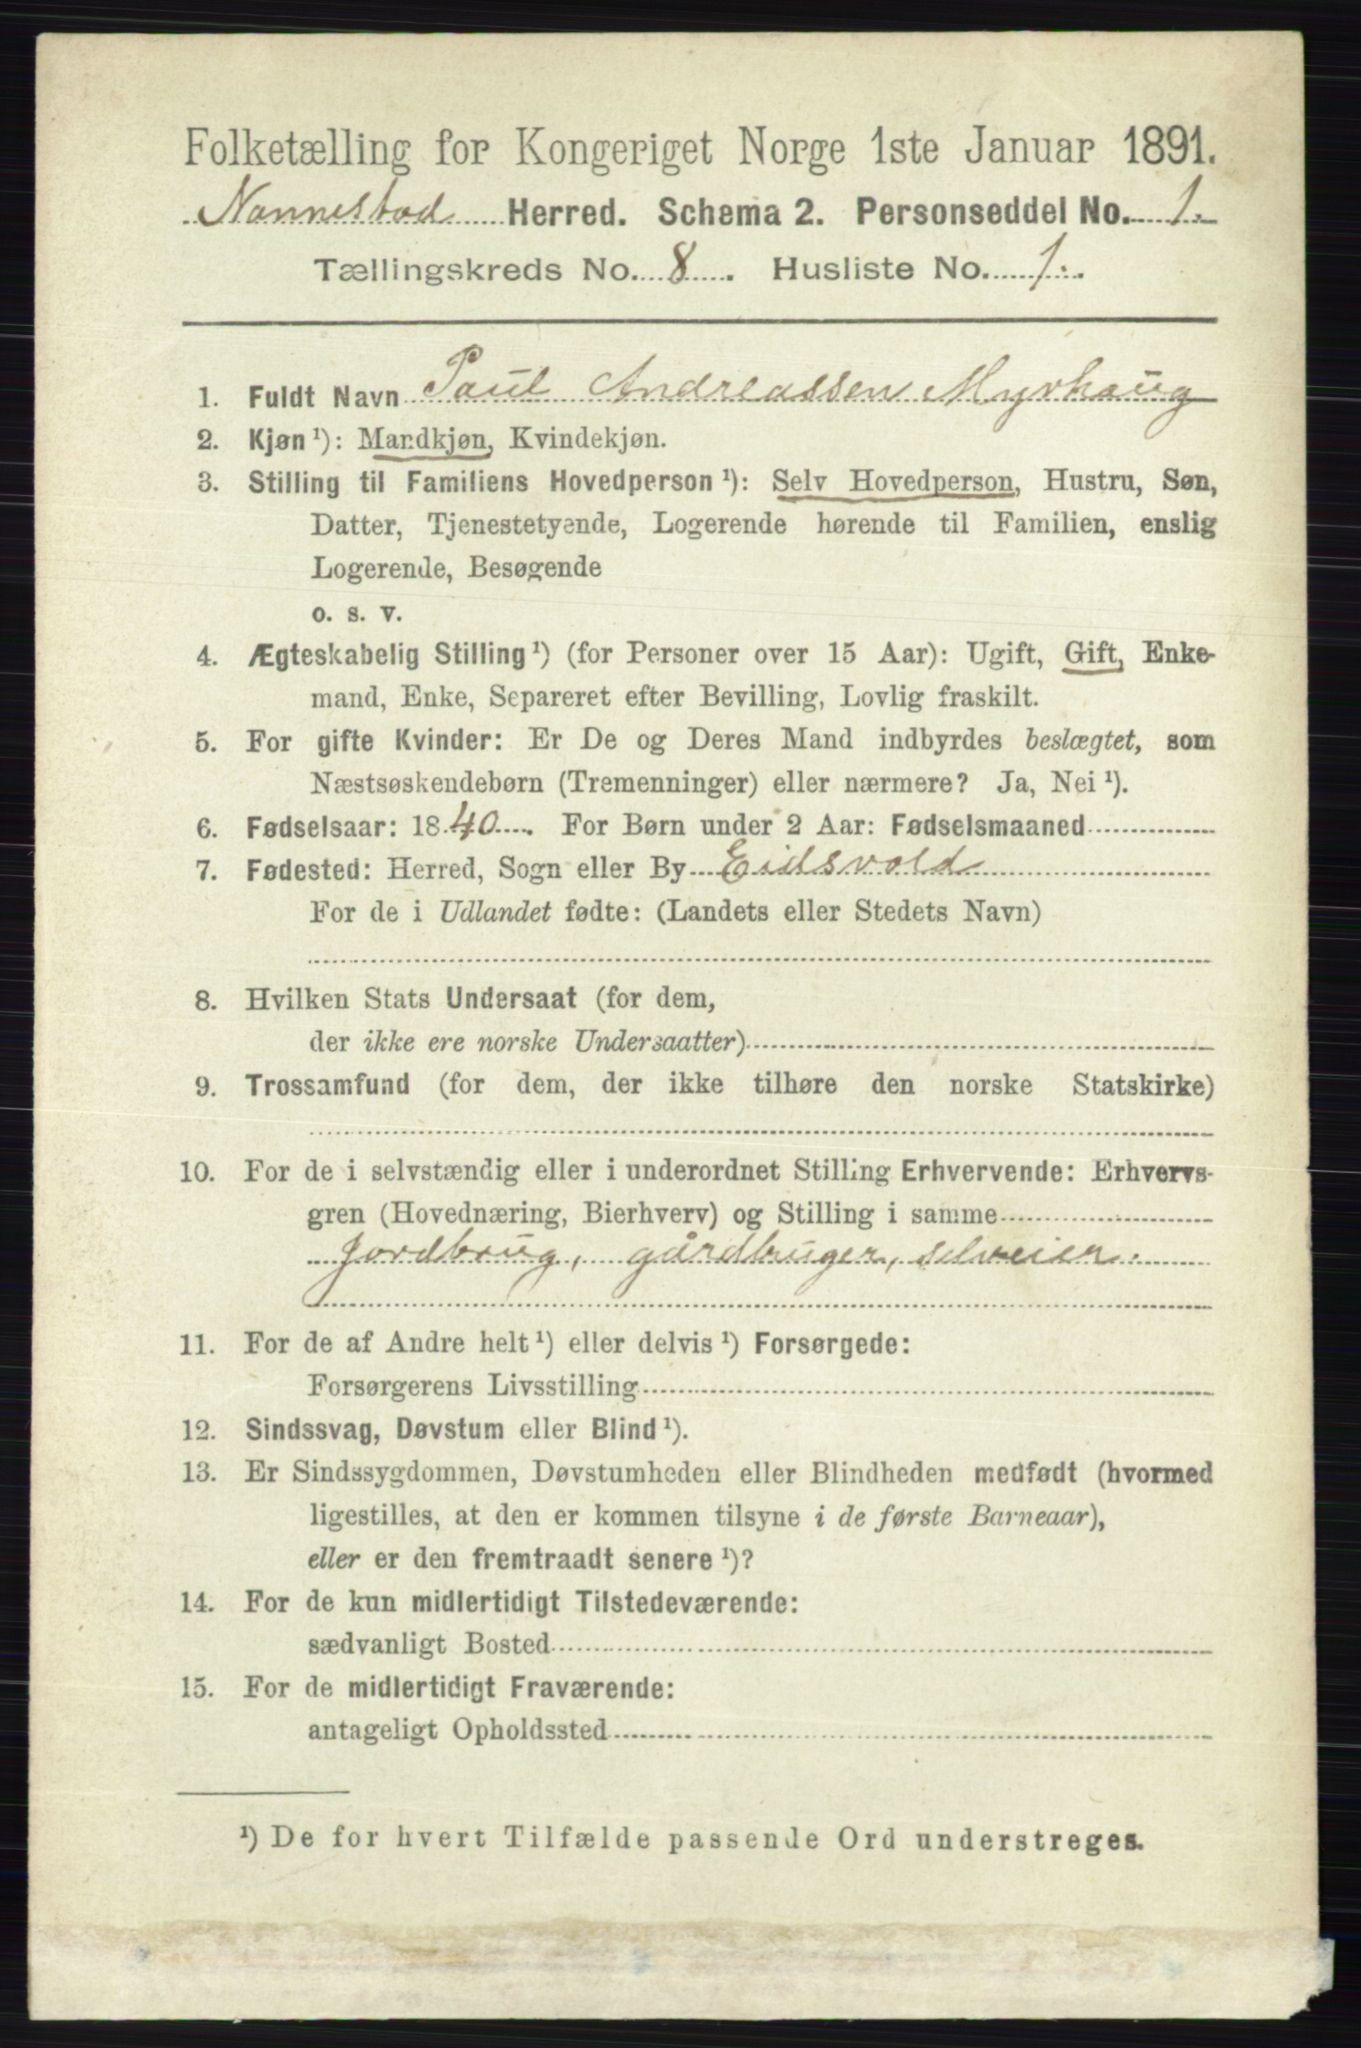 Folketælling for Kongeriget Norge 1ste Januar 1891.
Nannestad Herred. Schema 2. Personseddel No. 1.
Tællingskreds No. 8. Husliste No. 1.
1. Fuldt Navn Paul Andreassen Myrhaug
2. Kjøn ¹): Mandkjøn, Kvindekjøn.
3. Stilling til Familiens Hovedperson ¹): Selv Hovedperson, Hustru, Søn,
Datter, Tjenestetyende, Logerende hørende til Familien, enslig
Logerende, Besøgende
o. s. v.
4. Ægteskabelig Stilling ¹) (for Personer over 15 Aar): Ugift, Gift, Enke-
mand, Enke, Separeret efter Bevilling, Lovlig fraskilt.
5. For gifte Kvinder: Er De og Deres Mand indbyrdes beslægtet, som
Næstsøskendebørn (Tremenninger) eller nærmere? Ja, Nei ¹).
6. Fødselsaar: 1840. For Børn under 2 Aar: Fødselsmaaned
7. Fødested: Herred, Sogn eller By Eidsvold
For de i Udlandet fødte: (Landets eller Stedets Navn)
8. Hvilken Stats Undersaat (for dem,
der ikke ere norske Undersaatter)
9. Trossamfund (for dem, der ikke tilhøre den norske Statskirke)
10. For de i selvstændig eller i underordnet Stilling Erhvervende: Erhvervs-
gren (Hovednæring, Bierhverv) og Stilling i samme
Jordbrug, gårdbruger, selveier.
11. For de af Andre helt ¹) eller delvis ¹) Forsørgede:
Forsørgerens Livsstilling
12. Sindssvag, Døvstum eller Blind ¹).
13. Er Sindssygdommen, Døvstumheden eller Blindheden medfødt (hvormed
ligestilles, at den er kommen tilsyne i de første Barneaar),
eller er den fremtraadt senere ¹)?
14. For de kun midlertidigt Tilstedeværende:
sædvanligt Bosted
15. For de midlertidigt Fraværende:
antageligt Opholdssted
¹) De for hvert Tilfælde passende Ord understreges.